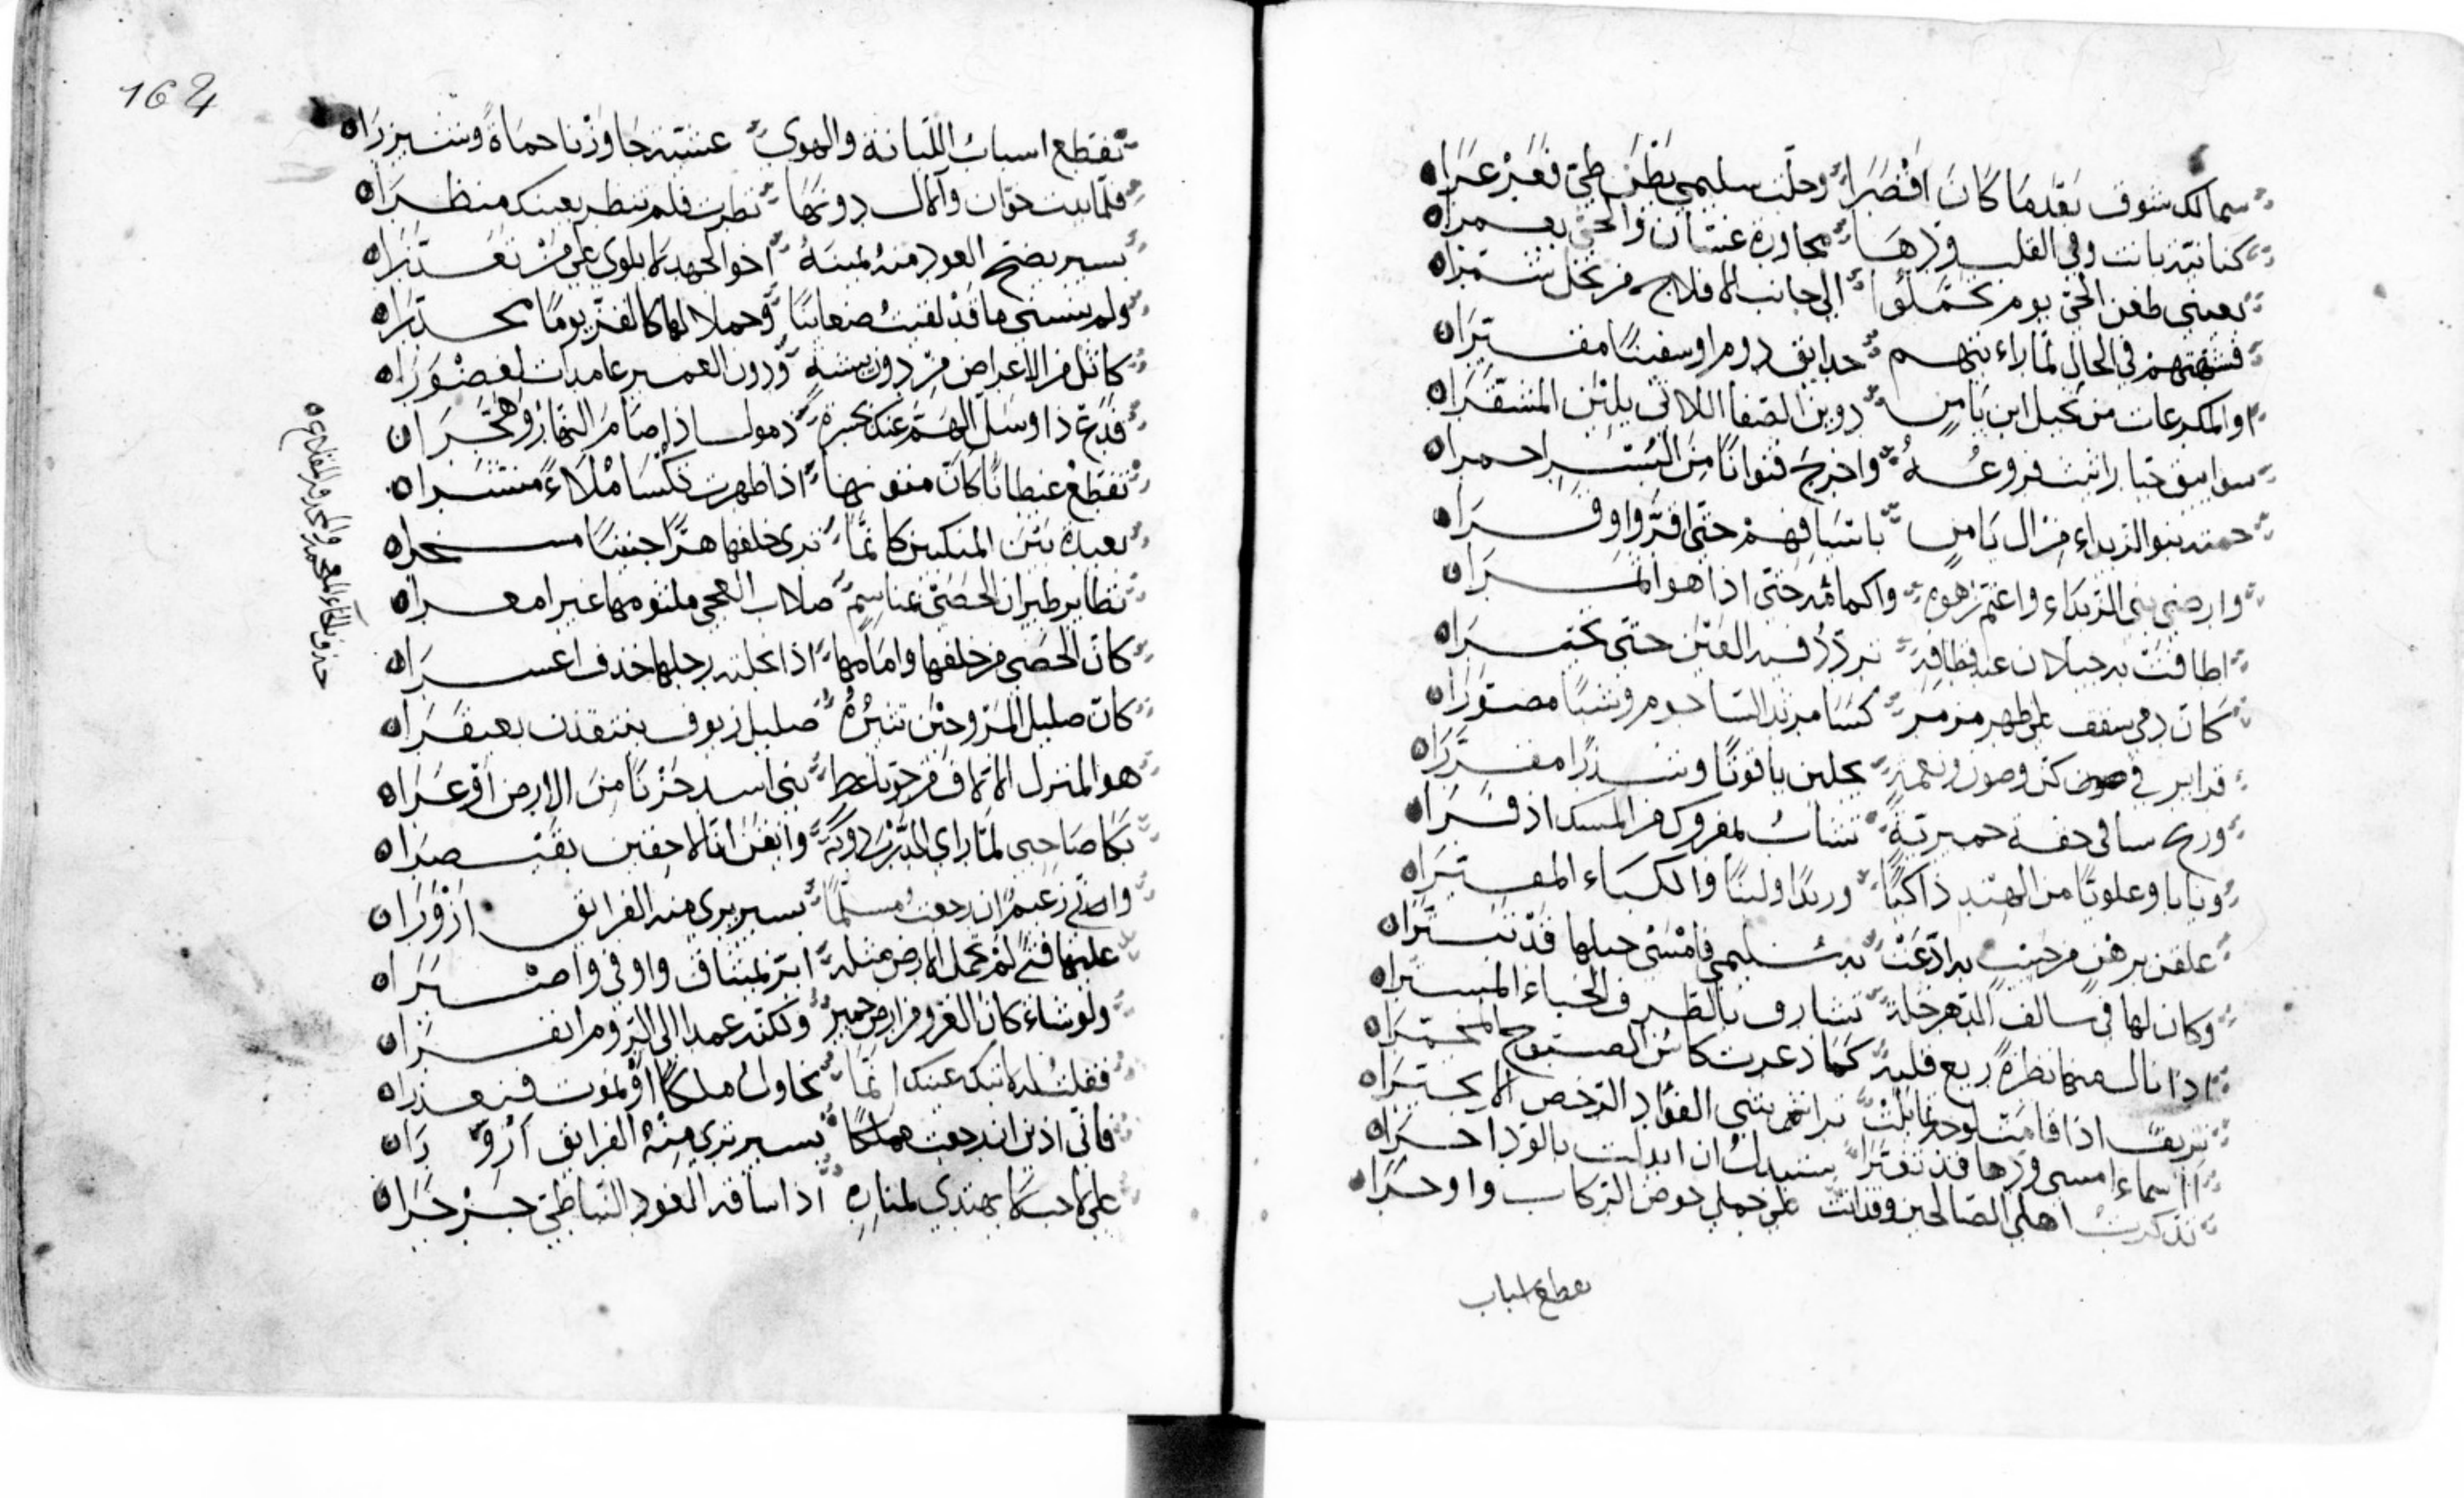 سمالك شوق بعدما كان اقصرا وحلت سليمى بطن ظبي فعرعرا
كنانية بانت وفي القلب ودها مجاورة غسان والحي يعمرا
بعيني ظعن الحي يوم تحملوا الى جانب الافلاج من نخل تيمرا
فشبهتهم في الحال لما زهاء بينهم حدايق دوم او سفينا مقيرا
او المكرعات من نخيل ابن يامن دوين الصفا اللاتي يلين المشقرا
سوامق جبار اثيث فروعه واخرج قنوانا من البسر احمرا
حمته بنو الربداء من ال يامن باسيافهم حتى اقروا وقرا
وارضى بني الربداء واعتم زهوه واكمامه حتى اذا هو اثمرا
اطافت به جيلان عند قطافه تردد فيه العين حتى تحيرا
كان دمى سقف على ظهر مرمر كسا مزبد الساجوم وشيا مصورا
غراير في كن وصون ونعمة يحلين ياقوتا وشذرا مفقرا
وريح سنا في حقة حميرية تشاب بمفروك من المسك اذفرا
وبانا وعلويا من الهند ذاكيا ورندا ولبنا والكباء المقترا
علقن برهن من حبيب به ادعت سليمى فامسى حبلها قد تبترا
وكان لها في سالف الدهر خلة تسارق بالطرف الخباء المسترا
اذا نال منها نظرة ريع قلبه كما ذعرت كاس الصبوح المخمرا
نزيف اذا قامت لوجه تمايلت تراشي الفؤاد الرخص الا تخترا
ااسماء امسى ودها قد تغيرا سنبدل ان ابدلت بالود اخرا
تذكرت اهلي الصالحين وقد اتت على جملى خوص الركاب واوجرا
تقطع اسباب
164
تقطع اسباب اللبانة والهوى عشية جاوزنا حماة وشيزرا
فلما بدت حوران والال دونها نظرت فلم تنظر بعينيك منظرا
بسير يضج العود منه يمنه اخو الجهد لا يلوي على من تعذرا
ولم ينسني ما قد لقيت ظعاينا وخملا لها كالقر يوما مخدرا
كاثل من الاعراض من دون بيشة ودون الغمير عامدات لغضورا
فدع ذا وسل الهم عنك بجسرة ذمول اذا صام النهار وهجرا
تقطع غيطانا كان متونها اذا ظهرت تكسا ملاء منشرا
بعيدة بين المنكبين كانما ترى خلفها هرا جنيبا مشجرا
تطاير ظران الحصى عن مناسم صلاب العجى ملثومها غير امعرا
كان الحصى من خلفها وامامها اذا نجلته رجلها خذف اعسرا
كان صليل المرو حين تثيره صليل زيوف ينتقدن بعبقرا
هو المنزل الالاف من جو ناعط بني اسد حزنا من الارض اوعرا
بكا صاحبي لما راى الدرب دونه وايقن انا لاحقين بقيصرا
واني زعيم ان رجعت مسلما بسير يرى منه الفرانق ازورا
عليها فتى لم تحمل الارض مثله ابر بميثاق واوفى واصبرا
ولو شاء كان الغزو من ارض حمير ولكنه عمدا الى الروم انفرا
فقلت له لا تبك عينك انما نحاول ملكا او نموت فنعذرا
فاني اذين ان رجعت مملكا بسير ترى منه الفرانق ازورا
على لاحب لا يهتدى لمناره اذا سافه العود النباطي جرجرا